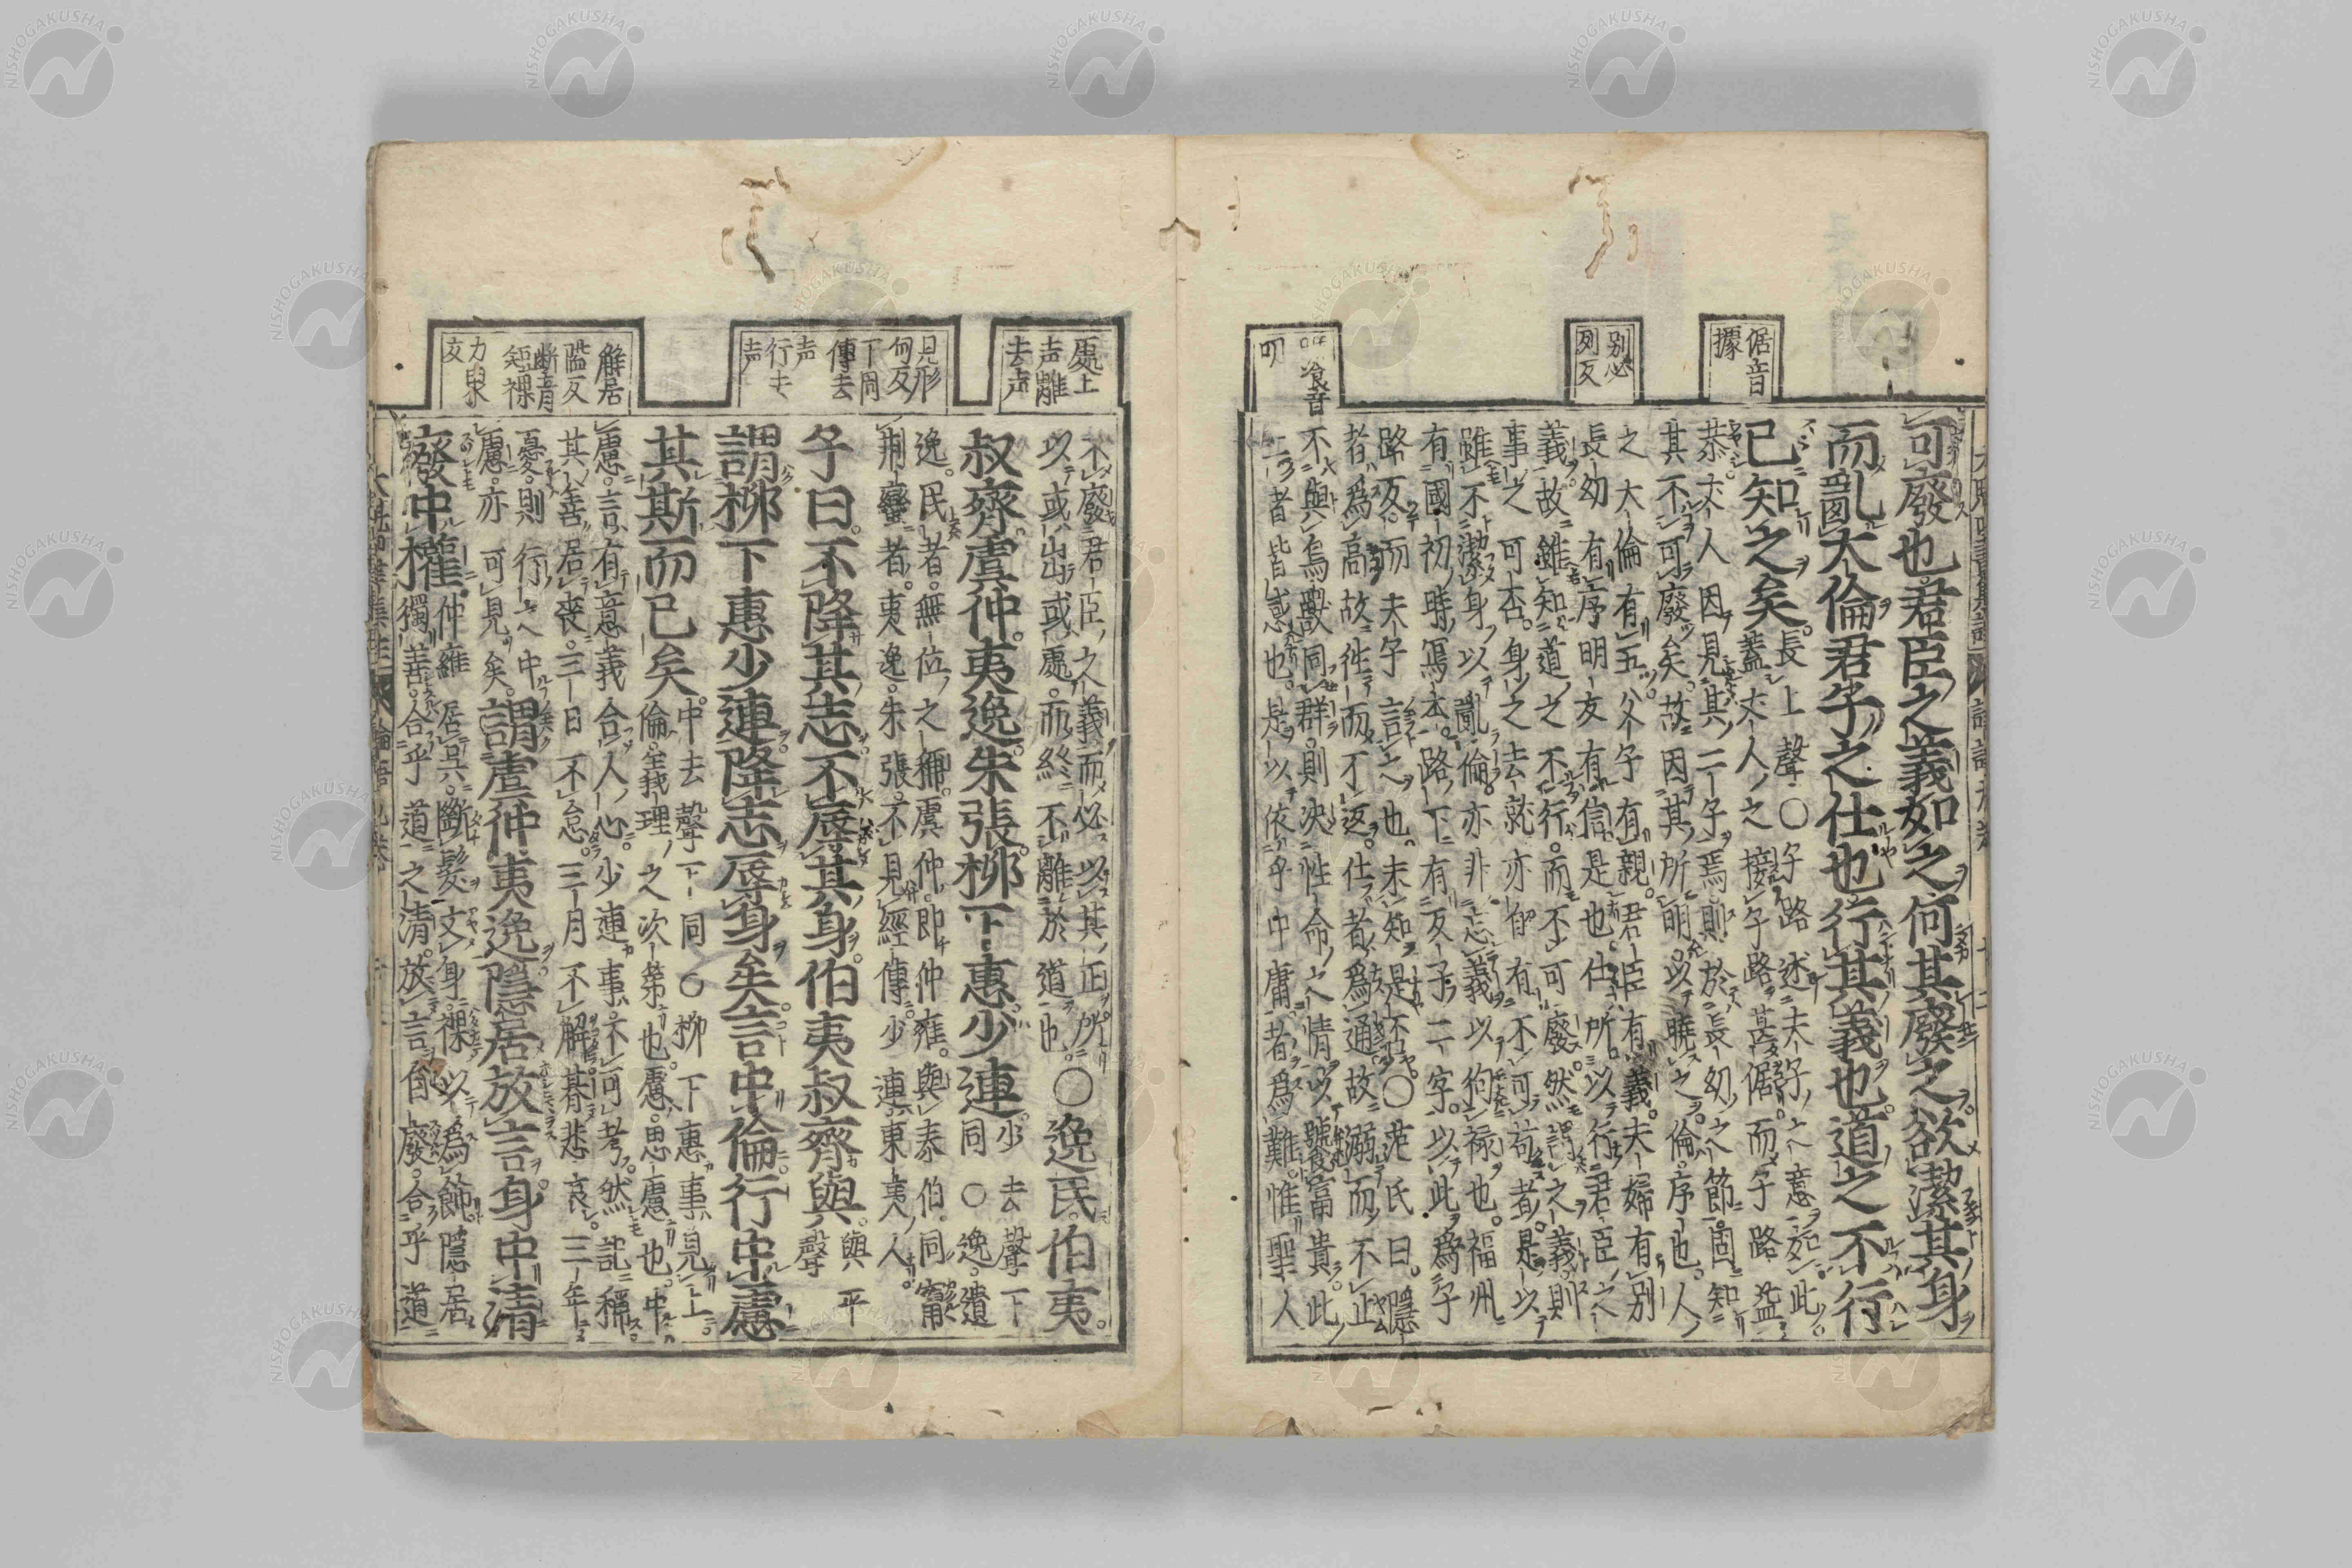 倨音
據
別必
列反
飡音
叨
可廢也君臣之義如之何其廢之欲潔其身
而亂大倫君子之仕也行其義也道之不行
已知之矣
長上聲○子路述夫子之意如此
蓋丈人之接子路甚倨而子路益
恭丈人因見其二子焉則於長幼之節固知
其不可廢矣故因其所明以曉之倫序也人
之大倫有五父子有親君臣有義夫婦有別
長幼有序朋友有信是也仕所以行君臣之
義故雖知道之不行而不可廢然謂之義則
事之可否身之去就亦自有不可苟者是以
雖不潔身以亂倫亦非忘義以徇祿也福州
有國初時寫本路下有反子二字以此爲子
路反而夫子言之也未知是否○范氏曰隱
者爲高故往而不返仕者爲通故溺而不止
不與鳥獸同群則決性命之情以饕富貴此
二者皆惑也是以依乎中庸者爲難惟聖人
處上
声離
去声
見形
何反
下同
傳去
声
行去
声
解居
隘反
斷音
短裸
力果
反
不廢君臣之義而必以其正所
以或出或處而終不離於道也○逸民伯夷
叔齊虞仲夷逸朱張柳下惠少連
少去聲下
同○逸遺
逸民者無位之稱虞仲即仲雍與泰伯同竄
荊蠻者夷逸朱張不見經傳少連東夷人
子曰不降其志不辱其身伯夷叔齊與
與平
聲
謂柳下惠少連降志辱身矣言中倫行中慮
其斯而已矣
中去聲下同○柳下惠事見上
倫義理之次第也慮思慮也中
慮言有意義合人心少連事不可考然記稱
其善居喪三日不怠三月不解朞悲哀三年
憂則行之中
慮亦可見矣
謂虞仲夷逸隱居放言身中清
廢中權
仲雍居吳斷髮文身裸以爲飾隱居
獨善合乎道之清放言自廢合乎道
NISHOGAKUSHA